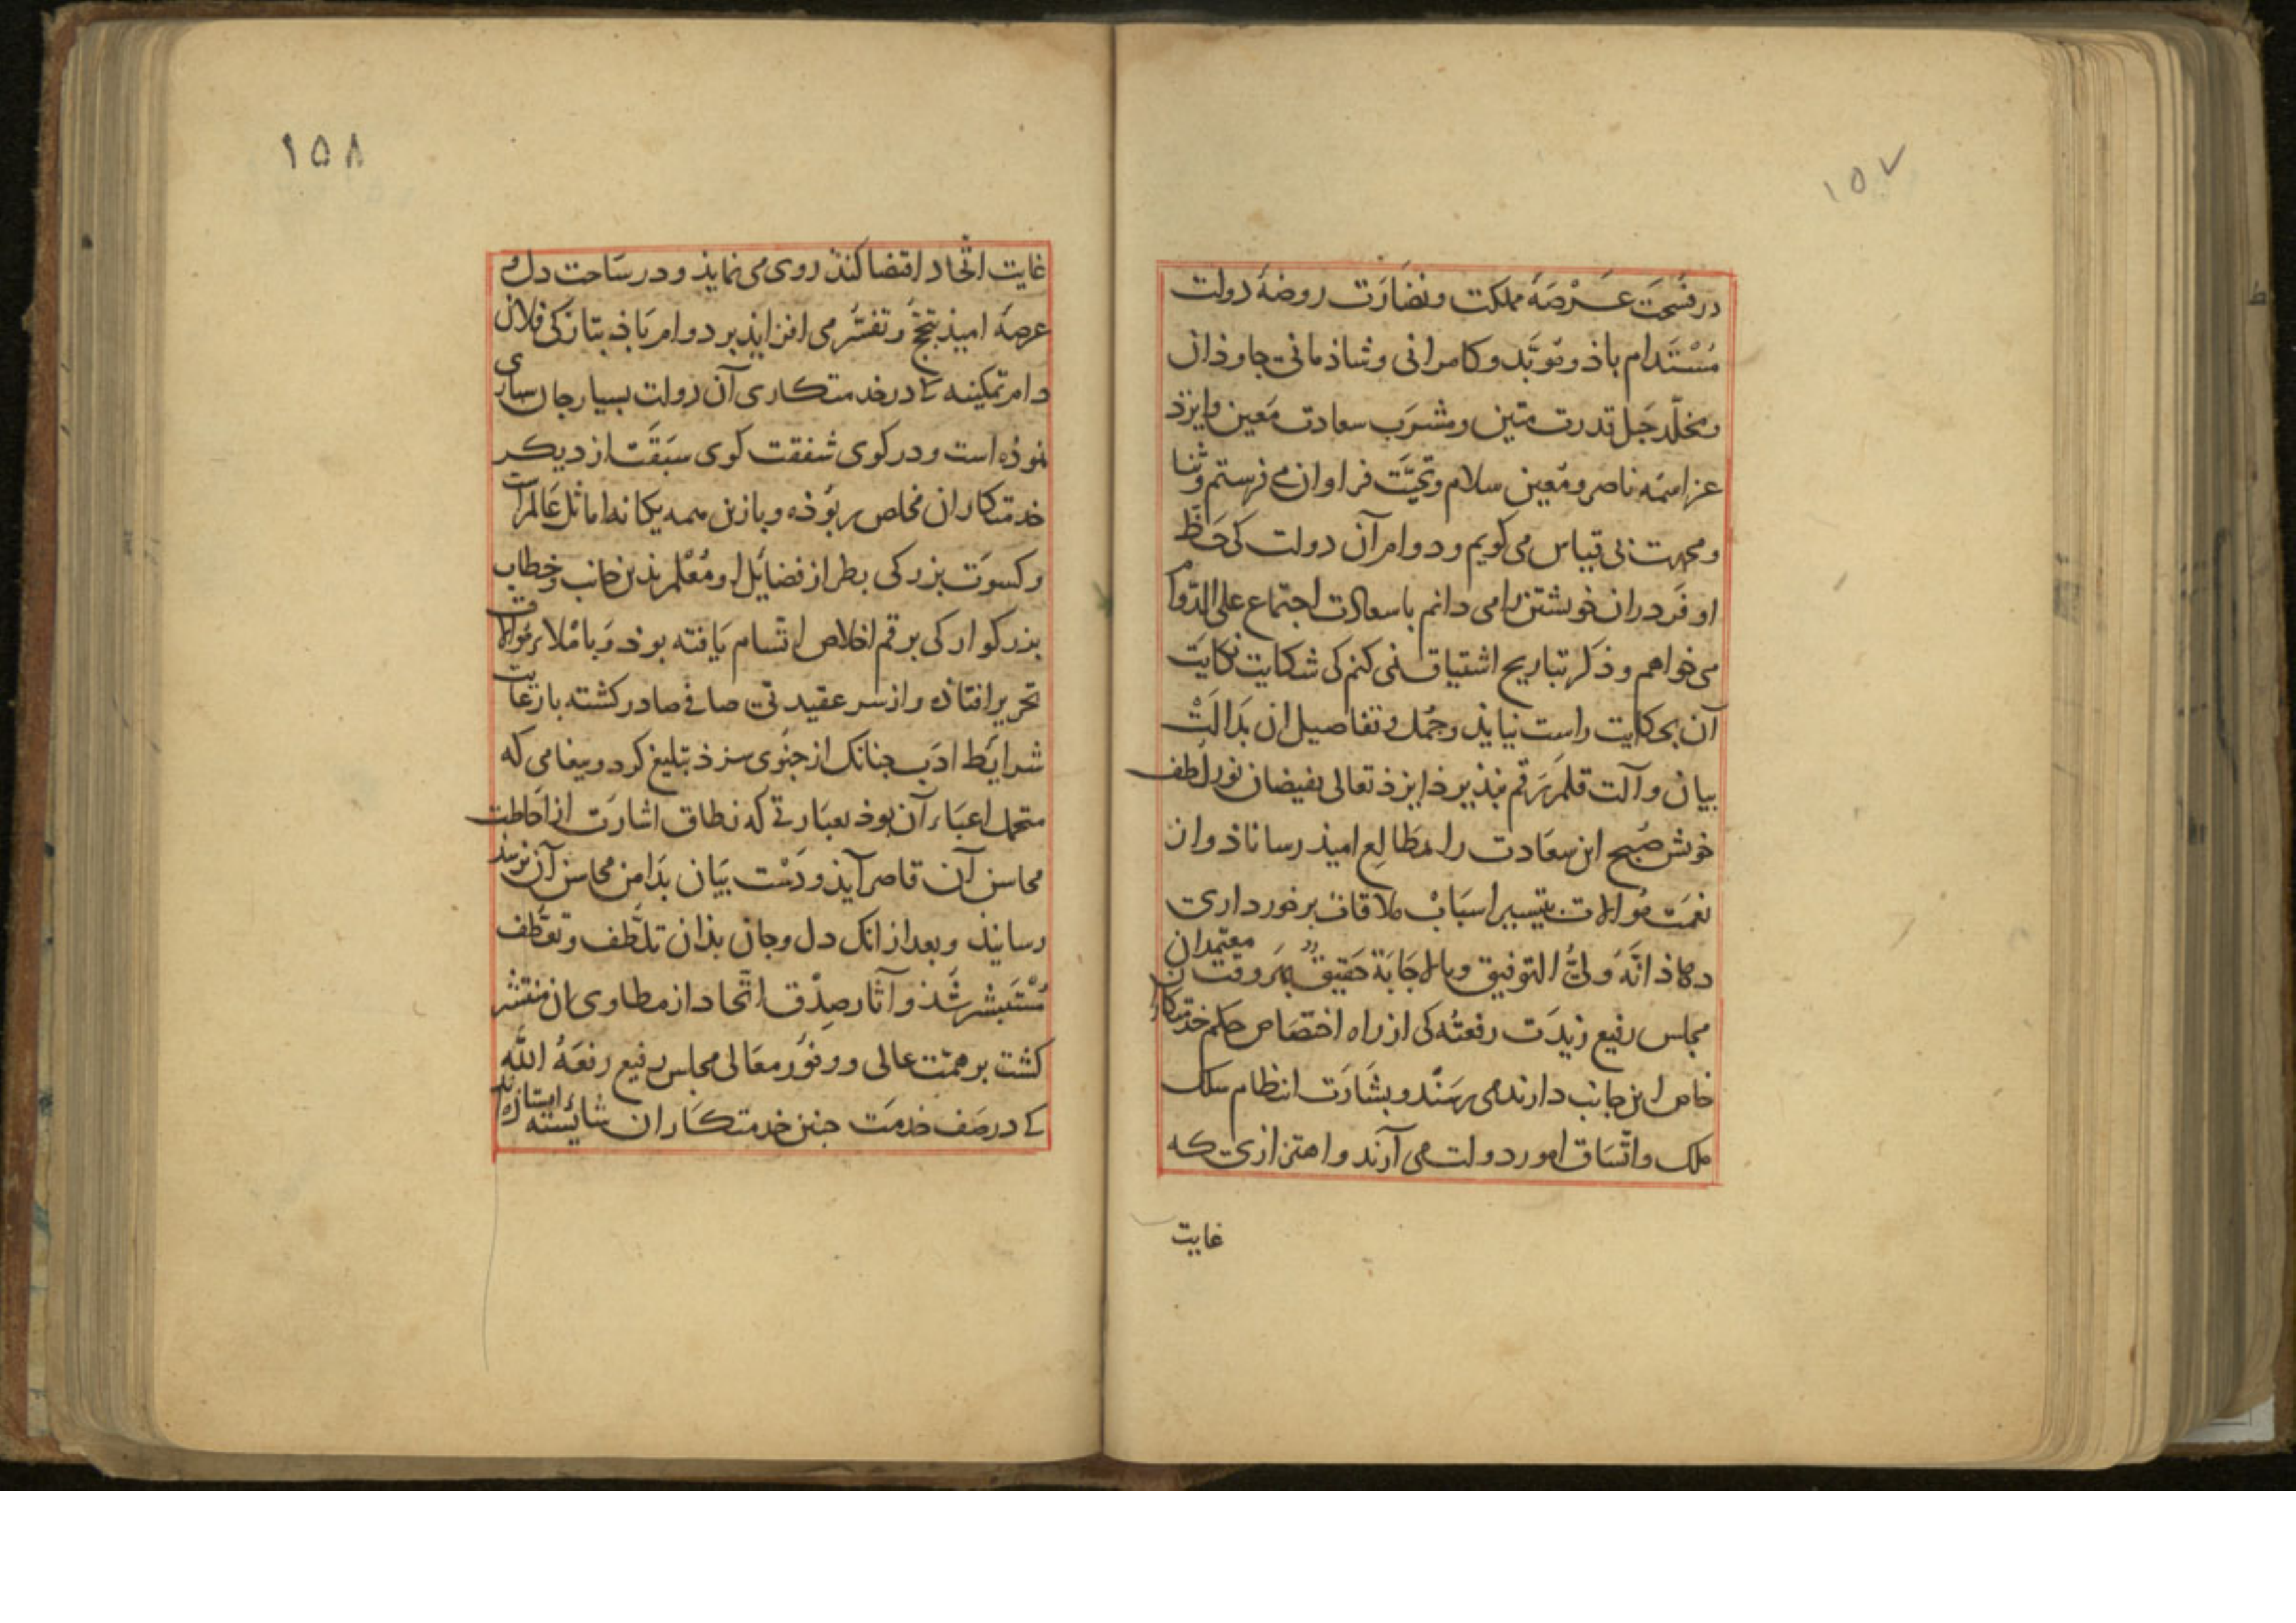 ١٥٧
در فسحَت عَرْصَهٔ مملکت و نضَارَت روضهٔ دولت
مُسْتَدام باذ و مؤبَّد و کامرانی و شاذمانی جاوذان
و مخلّد حَبل قدرت متین و مشرَب سعادت مَعین و ایزد
عز اسمُه ناصر و مُعین سلام و تحیَّت فراوان می فرستم و ثنا
و محمدت بی قیاس می کویم و دوام آن دولت کی حَظّ
اوفَر در ان خویشتن را می دانم با سعادت اجتماع علی الدّوام
می خواهم و ذکر تباریح اشتیاق نمی کنم کی شکایت نکایَت
آن بحکایت راست نیایذ و جُمل و تفاصیل ان بدَالَتْ
بیان و آلت قلم رَقم نپذیرذ ایزذ تعالی بفیضان نور لطف
خویش صُبح این سعَادت را از مطَالِع امیذ رساناذ و ان
نعمَت مُوالات بتیسیر اسبَابْ ملاقات برخورداری
دهاذ انَّهُ وَلیُّ التوفیق و بالاجَابَة حَقیقٌ بهَر وقت معتمدان
مجلس رفیع زیدَت رفعتُه کی از راه اختصَاص حکم خدمتکاران
خاص این جانب دارند می رسَنْد و بشَارَت انتظام سلک
ملک و اتّسَاق امور دولت می آرَند و اهتزازی که
غایت
١٥٨
غایت اتّحاد اقتضا کنذ روی می نمایذ و در سَاحت دل و
عرصهٔ امیذ تبجّح و تفسُّر می افزایذ بر دوام باذ بتازکی فلان
دام تمکینه کی در خدمتکاری آن دولت بسیار جان سپاری
نموذه است و در کوی شفقت کوی سَبَقَت از دیکر
خدمتکاران مخلص ربُوذه و بازین همه یکانه اماثل عَالم است
و کسوَت بزرکی بطراز فضایل او مُعْلم بذین جانب و خطاب
بزرکوار کی برقم اخلاص اتّسام یَافته بوذ وَ باملاء مُوالات
تحریر افتاذه و از سر عقیدتی صافی صادر کشته با رعَایت
شرایط ادَب چنانک از چنوی سزذ تبلیغ کرد و پیغامی که
متحمل اعبَاء آن بوذ بعبَارتی که نطاق اشارَت از احَاطت
محاسن آن قاصر آیذ و دَسْت بیَان بدَامن محاسن آن نرسذ
رسانیذ و بعد از انک دل و جان بذان تلطّف و تعطّف
مُسْتَبشر شُذ و آثار صِدْق اتّحاد از مطاوی ان منتشر
کشت بر همّت عالی و وفُور معَالی مجلس رفیع رفعَهُ اللّٰه
کی در صَف خدمَت چنین خدمتکاران شایسته ایستاذه اند